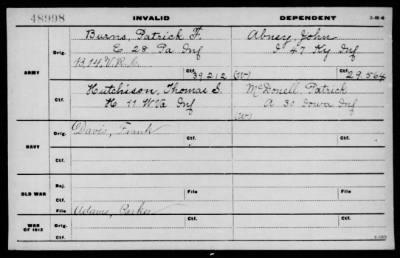 48998 INVALID DEPENDENT
Burns, Patrick F. Abney, John
Orig. E 28 Pa Inf I 47 Ky Inf
B, 14, V.R.C. Ctf. 39,212 (W) Ctf. 29.564
ARMY
Hutchison, Thomas S. McDonell, Patrick
Ctf. K 11 W Va Inf A 30 Iowa Inf
(W)
Davis, Frank
Orig. Ctf. Ctf.
NAVY
Ctf.
Rej.
OLD WAR File File
Ctf.
File
Adams, Parker
WAR OF 1812 Orig. Ctf. Ctf.